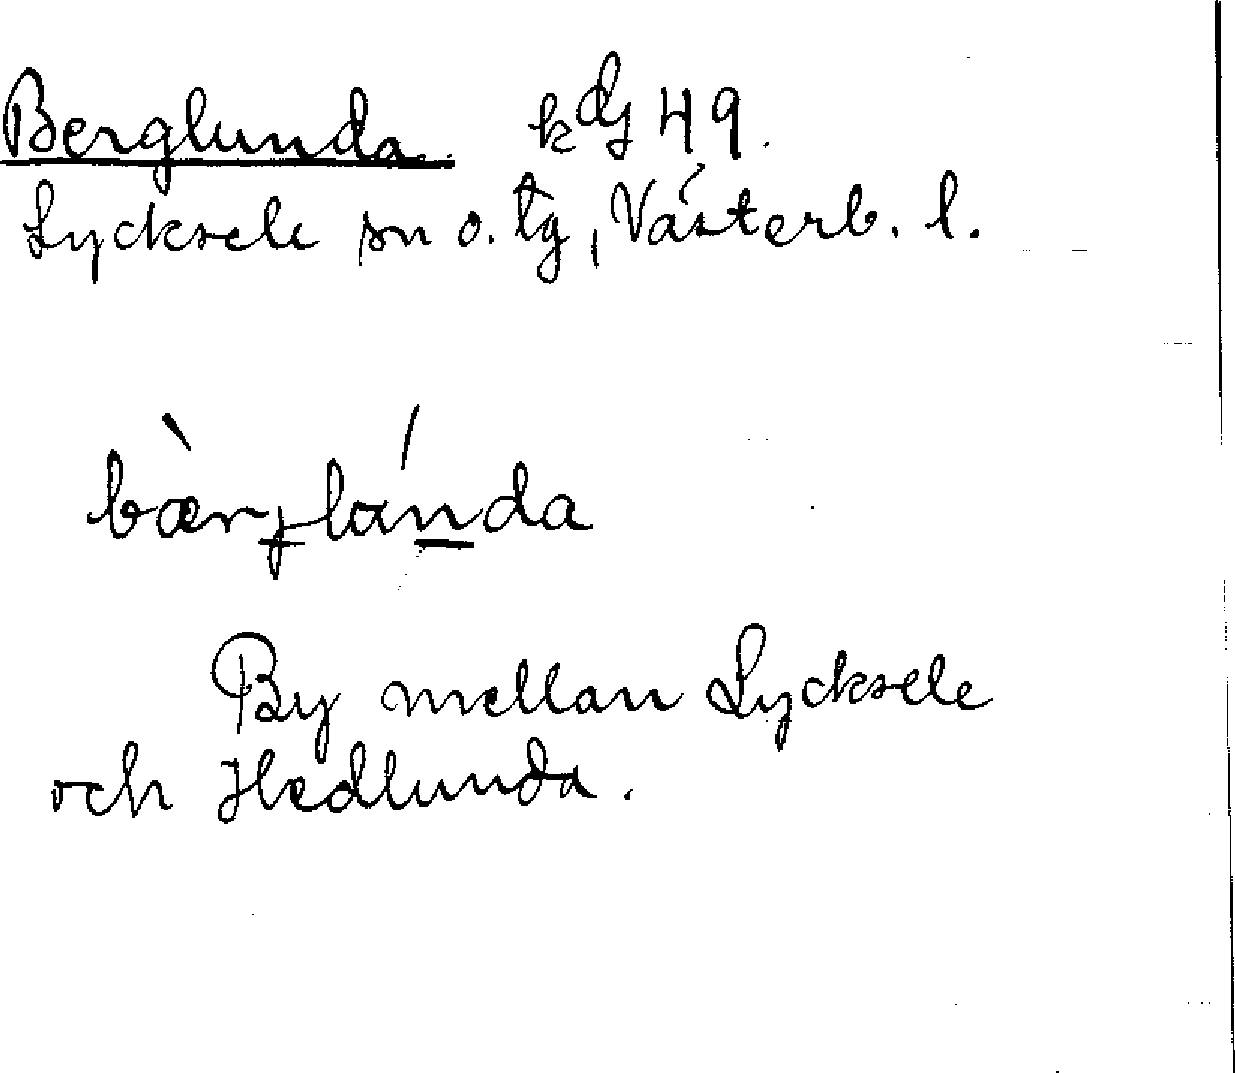 Berglunda kdj 49.
Lycksele sn o. tg, Västerb. l.
bærjlanda
By mellan Lycksele
och Hedlunda.